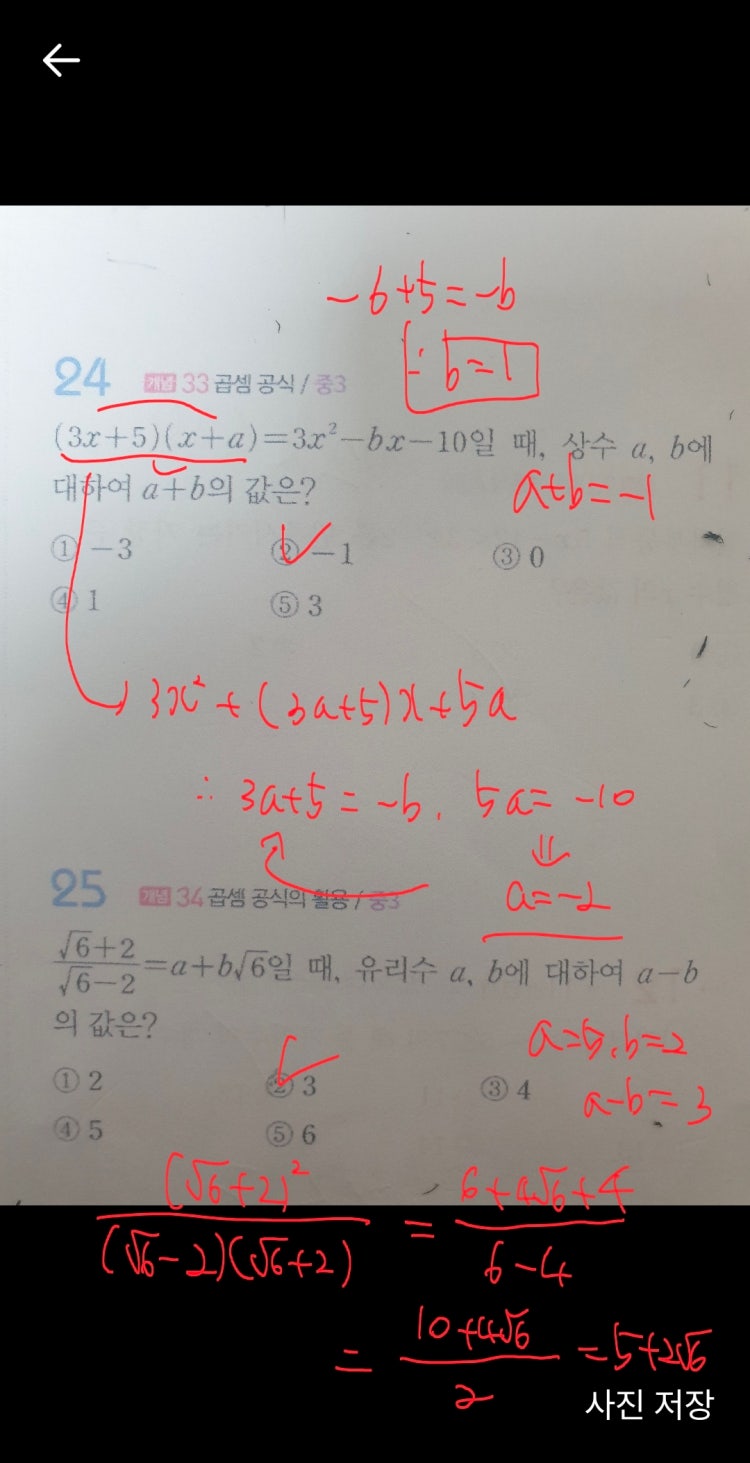 -6+5=-b
∴ b=1
24 개념 33 곱셈 공식 / 중3
(3x+5)(x+a)=3x²-bx-10일 때, 상수 a, b에
대하여 a+b의 값은?
a+b=-1
① -3 ② -1 ③ 0
④ 1 ⑤ 3
3x²+(3a+5)x+5a
∴ 3a+5=-b, 5a=-10
⇓
a=-2
25 개념 34 곱셈 공식의 활용 / 중3
(√6+2)/(√6-2)=a+b√6일 때, 유리수 a, b에 대하여 a-b
의 값은?
a=5, b=2
a-b=3
① 2 ② 3 ③ 4
④ 5 ⑤ 6
(√6+2)²/((√6-2)(√6+2)) = (6+4√6+4)/(6-4)
= (10+4√6)/2 = 5+2√6
사진 저장